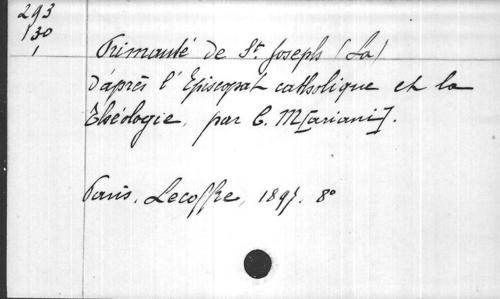 293
130
1
Primauté de St. Joseph (La)
d'après l'Episcopat catholique et la
théologie, par C. M[ariani].
Paris. Lecoffre, 1897. 8°